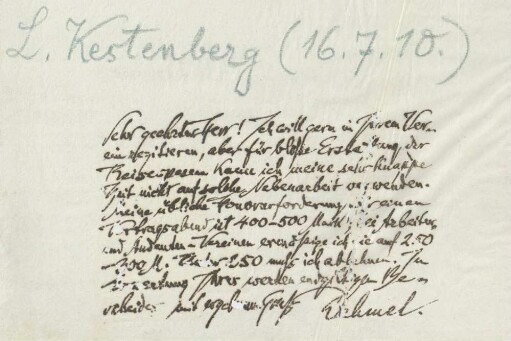 L. Kestenberg (16.7.10.)
Sehr geehrter Herr! Ich will gern in Ihrem Ver-
ein rezitieren, aber für bloße Erstattung der
Reisespesen kann ich meine sehr knappe
Zeit nicht auf solche Nebenarbeit verwenden.
Meine übliche Honorarforderung für einen
Vortragsabend ist 400-500 Mark; bei Arbeiter-
und Studenten-Vereinen ermäßige ich sie auf 250
-300 M. Unter 250 muß ich ablehnen. In
Erwartung Ihres werten endgültigen Be-
scheides mit ergebnem Gruß Dehmel.